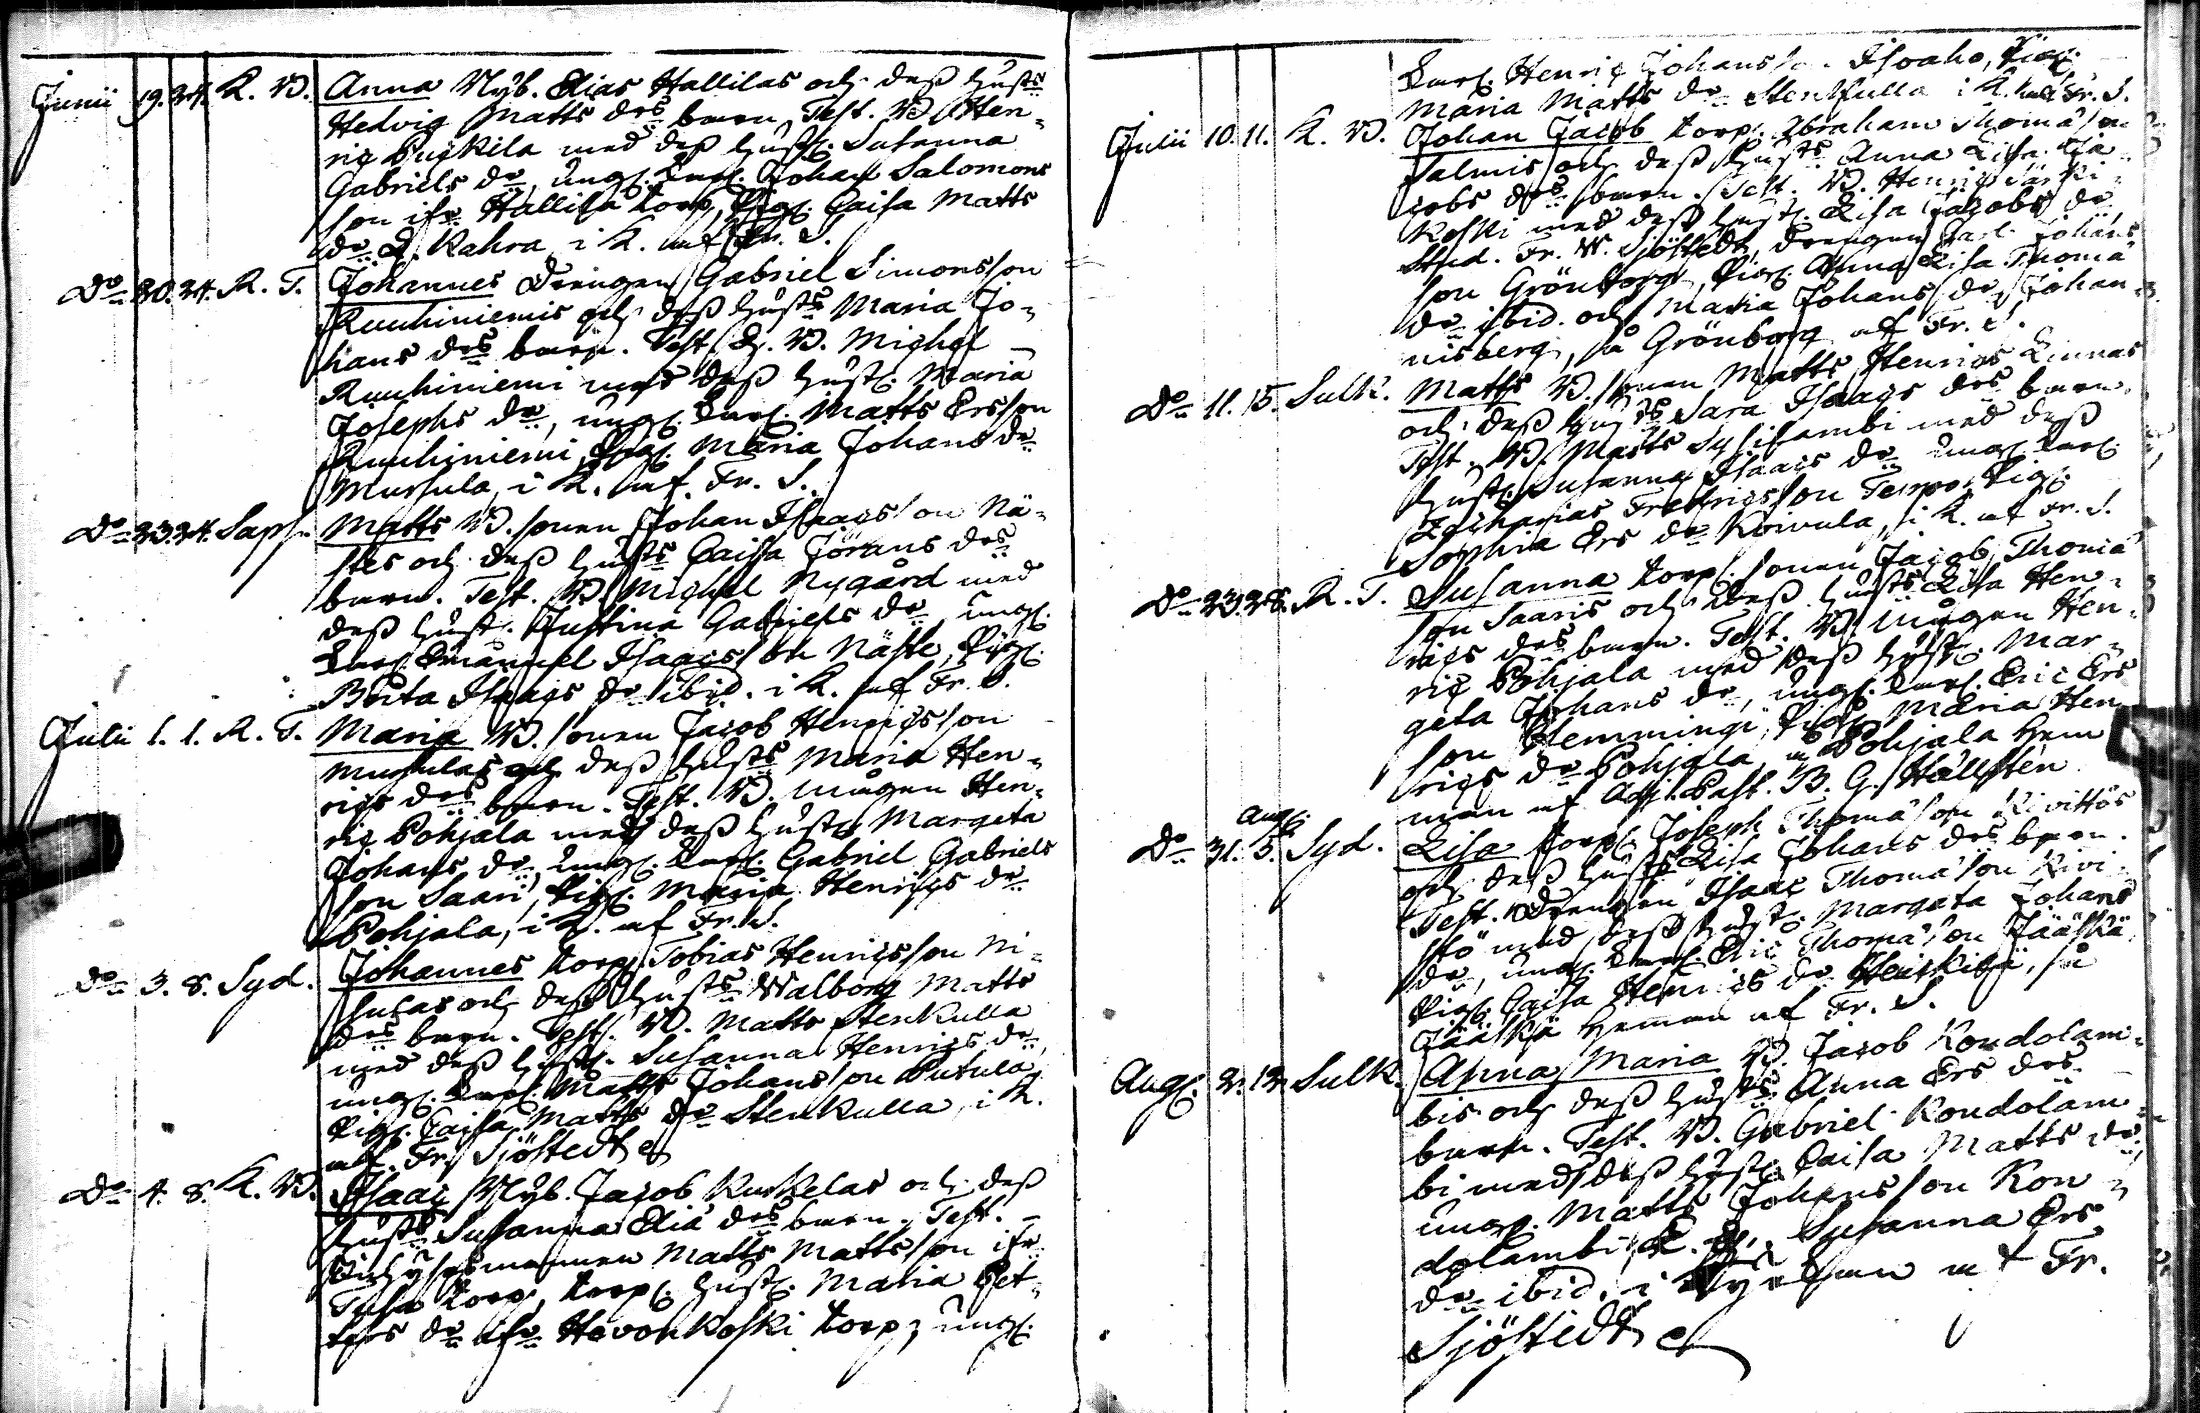 Junii 19. 24. K. B. Anna Nyb. Elias Hallilas och dess hust:s
Hedvig Matts d:rs barn, Test. B. Hen-
ric Puckila med dess hust. Susanna
Gabriels d:r, ung. karl. Johan Salomons
son ifr. Hallila torp, pig. Caisa Matts
d:r Kahra, i K. af Fr. S.
D:o 20. 24. R. T. Johannes Drengen Gabriel Simonsson
Ruuhiniemis och dess hust:s Maria Jo-
hans d:rs barn. Test. B. Michel
Ruuhiniemi med dess hust. Maria
Josephs d:r, ung. karl. Matts Ersson
Ruuhiniemi, pig. Maria Johans d:r
Mussula, i K. af Fr. S.
D:o 23. 24. Saps. Matts B. sonen Johan Isaacsson Nä-
stes och dess hust:s Caisa Jörans d:rs
barn. Test. B. Michel Nygård med
dess hust. Justina Gabriels d:r, ung.
karl. Emanuel Isaacsson Näste, pig.
Brita Isaacs d:r ibid. i K. af Fr. S.
Julii 1. 1. R. T. Maria B. sonen Jacob Henricsson
Mussulas och dess hust:s Maria Hen-
rics d:rs barn. Test. B. mågen Hen-
ric Pohjala med dess hust. Margeta
Johans d:r, ung. karl. Gabriel Gabriels
son Saari, pig. Maria Henrics d:r
Pohjala, i K. af Fr. S.
D:o 3. 8. Syd. Johannes torp. Tobias Henricsson Ni-
sulas och dess hust:s Walborg Matts
d:rs barn. Test. B. Matts Stenkulla
med dess hust. Susanna Henrics d:r,
ung. karl. Matts Johansson Putula,
pig. Caisa Matts d:r Stenkulla, i K.
af Fr. Sjöstedt
D:o 4. 8. K. B. Isaac Nyb. Jacob Kuckelas och dess
hust:s Susanna Eliæ d:rs barn. Test.
mannen Matts Mattsson ifr.
torp, torp. hust. Maria Pet-
ters d:r ifr. Havonkoski torp, ung.
karl. Henric Johansson Isoaho, pig.
Maria Matts d:r Stenkulla i K. af Fr. S.
Julii 10. 11. K. B. Johan Jacob torp. Abraham Thomasson
Salmis och dess hust:s Anna Lisa Ja-
cobs d:rs barn. Test. B. Henric Särki-
koski med dess hust. Lisa Jacobs d:r
Stud. Fr. W. Sjöstedt, Drengen Carl Johans
son Grönborg, pig. Anna Lisa Thomæ
d:r ibid. och Maria Johans d:r Johan-
nisberg, på Grönborg af Fr. S.
D:o 11. 15. Sulk. Matts B. sonen Matts Henrics Linnas
och dess hust:s Sara Isaacs d:rs barn.
Test. B. Matts Syslilambi med dess
hust. Susanna Isaacs d:r ung. karl.
Zacharias Fredricsson Tempo, pig.
Sophia Ers d:r Koivula, i K. af Fr. S.
D:o 23. 28. R. T. Susanna torp. sonen Jacob Thomæ
son Saaris och dess hust:s Lisa Hen-
rics d:rs barn. Test. B. mågen Hen-
ric Pohjala med dess hust. Mar-
geta Johans d:r, ung. karl. Eric Ers
son Hemmingi, pig. Maria Hen-
rics d:r Pohjala, å Pohjala hem
man af Adj. Past. B. G. Hällsten
D:o 31. Aug. 5. Syd. Lisa torp. Joseph Thomasson Kivittös
och dess hust:s Lisa Johans d:rs barn.
Test. Drengen Isaac Thomasson Kivi-
stö med dess hust. Margata Johans
d:r, ung. karl. Eric Thomasson Jääskä
pig. Caisa Henrics d:r Heiskilä, på
Jääskä heman af Fr. S.
Aug. 2. 12. Sulk. Anna Maria B. Jacob Kondolam-
bis och dess hust:s Anna Ers d:rs
barn. Test. B. Gabriel Kondolam-
bi med dess hust. Caisa Matts d:r,
ung. Matts Johansson Kon-
dolambi, Susanna Ers
d:r ibid. i Kyrkan af Fr.
Sjöstedt